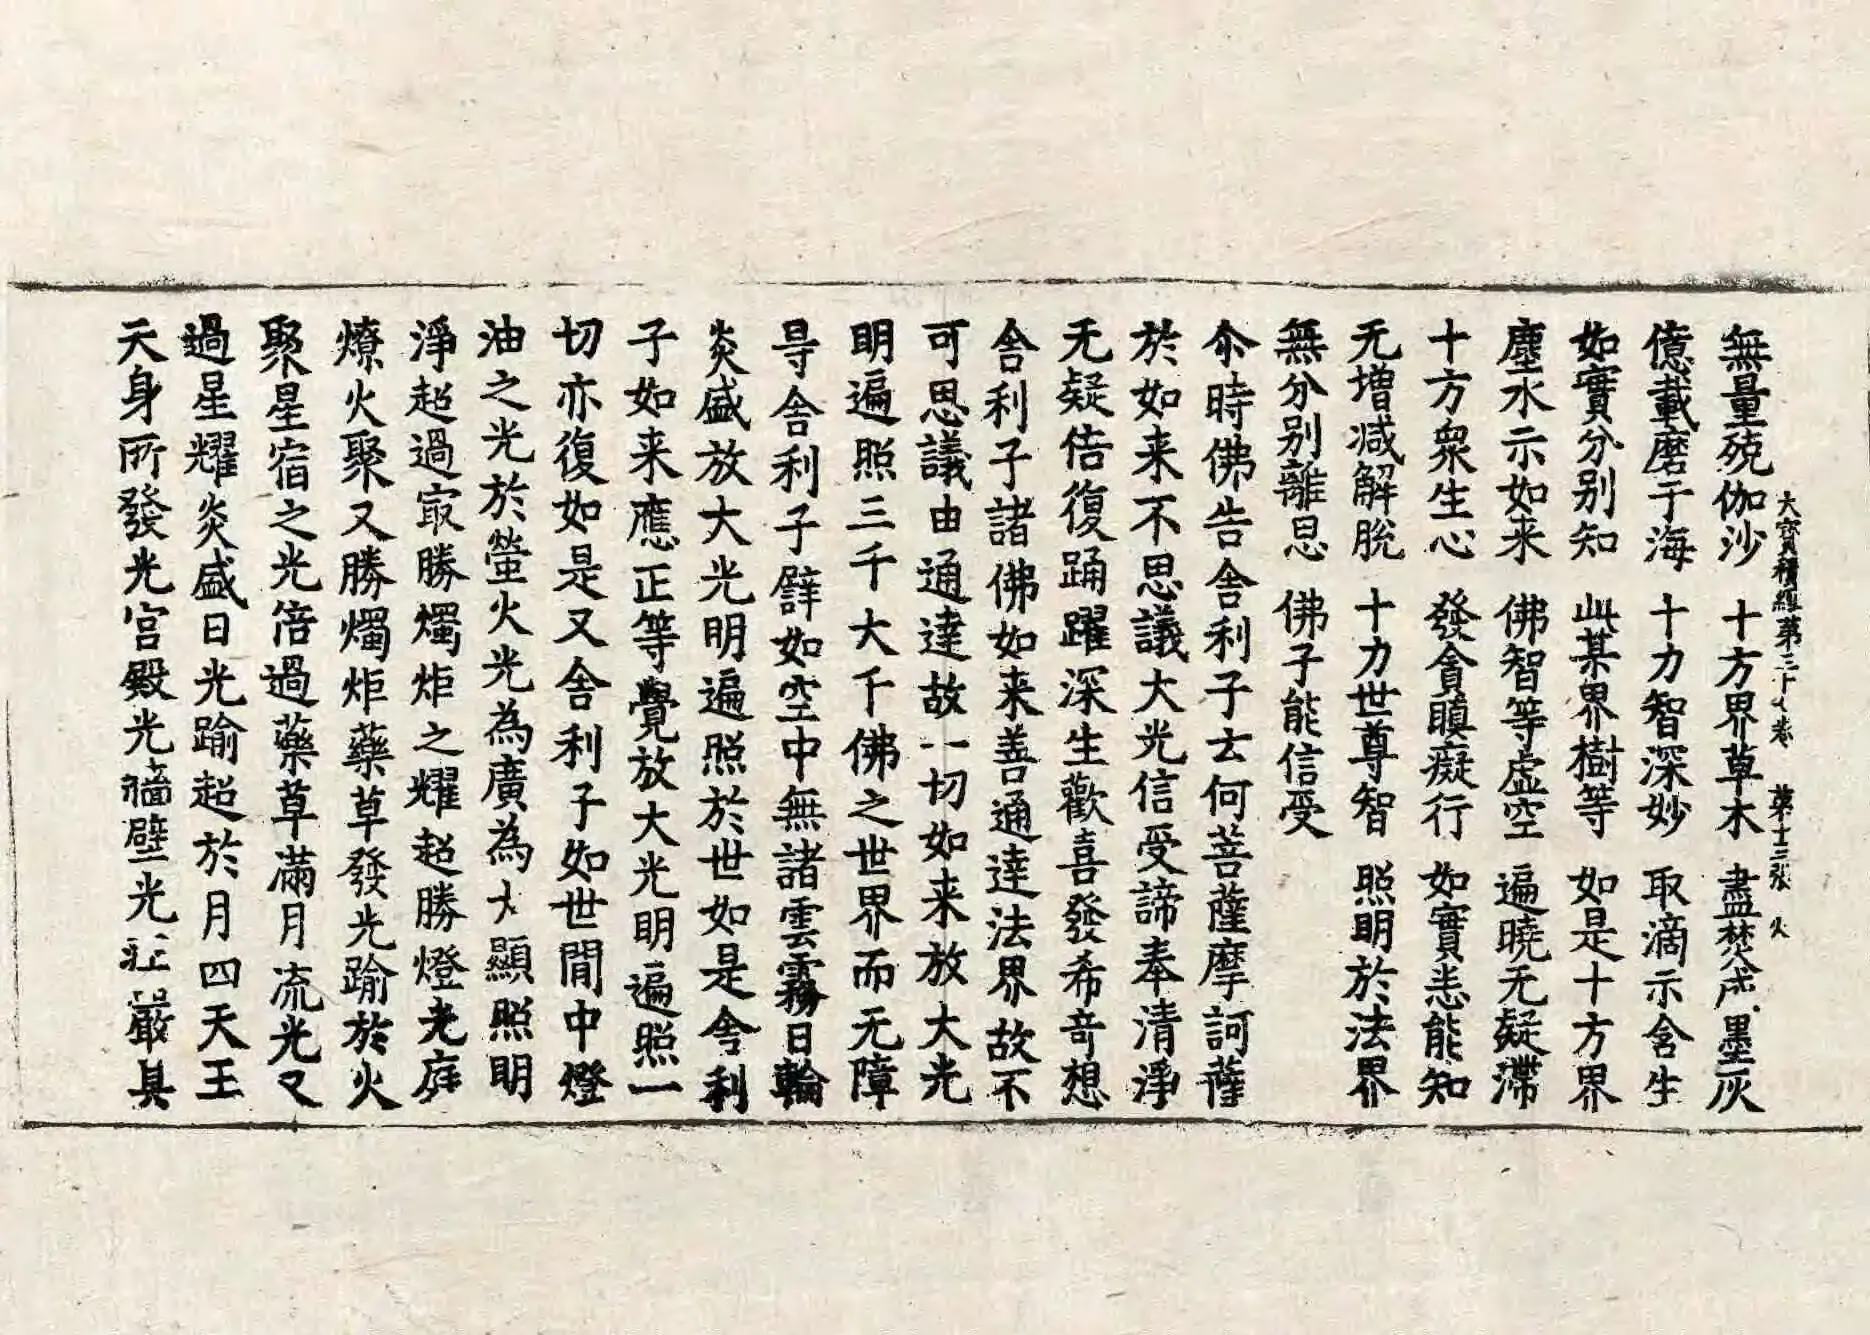 大寶積經第三十八卷　第十三張　火
無量殑伽沙　十方界草木　盡焚成墨灰
億載磨于海　十力智深妙　取滴示含生
如實分別知　此某界樹等　如是十方界
塵水示如来　佛智等虛空　遍曉无疑滯
十方衆生心　發貪瞋癡行　如實悉能知
无增减解脫　十力世尊智　照明於法界
無分別離思　佛子能信受
尒時佛告舍利子云何菩薩摩訶薩
於如来不思議大光信受諦奉清淨
无疑倍復踊躍深生歡喜發希奇想
舍利子諸佛如来善通達法界故不
可思議由通達故一切如来放大光
明遍照三千大千佛之世界而无障
㝵舍利子譬如空中無諸雲霧日輪
炎盛放大光明遍照於世如是舍利
子如来應正等覺放大光明遍照一
切亦復如是又舍利子如世間中燈
油之光於螢火光為廣為大顯照明
淨超過㝡勝燭炬之耀超勝燈光庭
燎火聚又勝燭炬藥草發光踰於火
聚星宿之光倍過藥草滿月流光又
過星耀炎盛日光踰超於月四天王
天身所發光宮殿光牆壁光莊嚴具